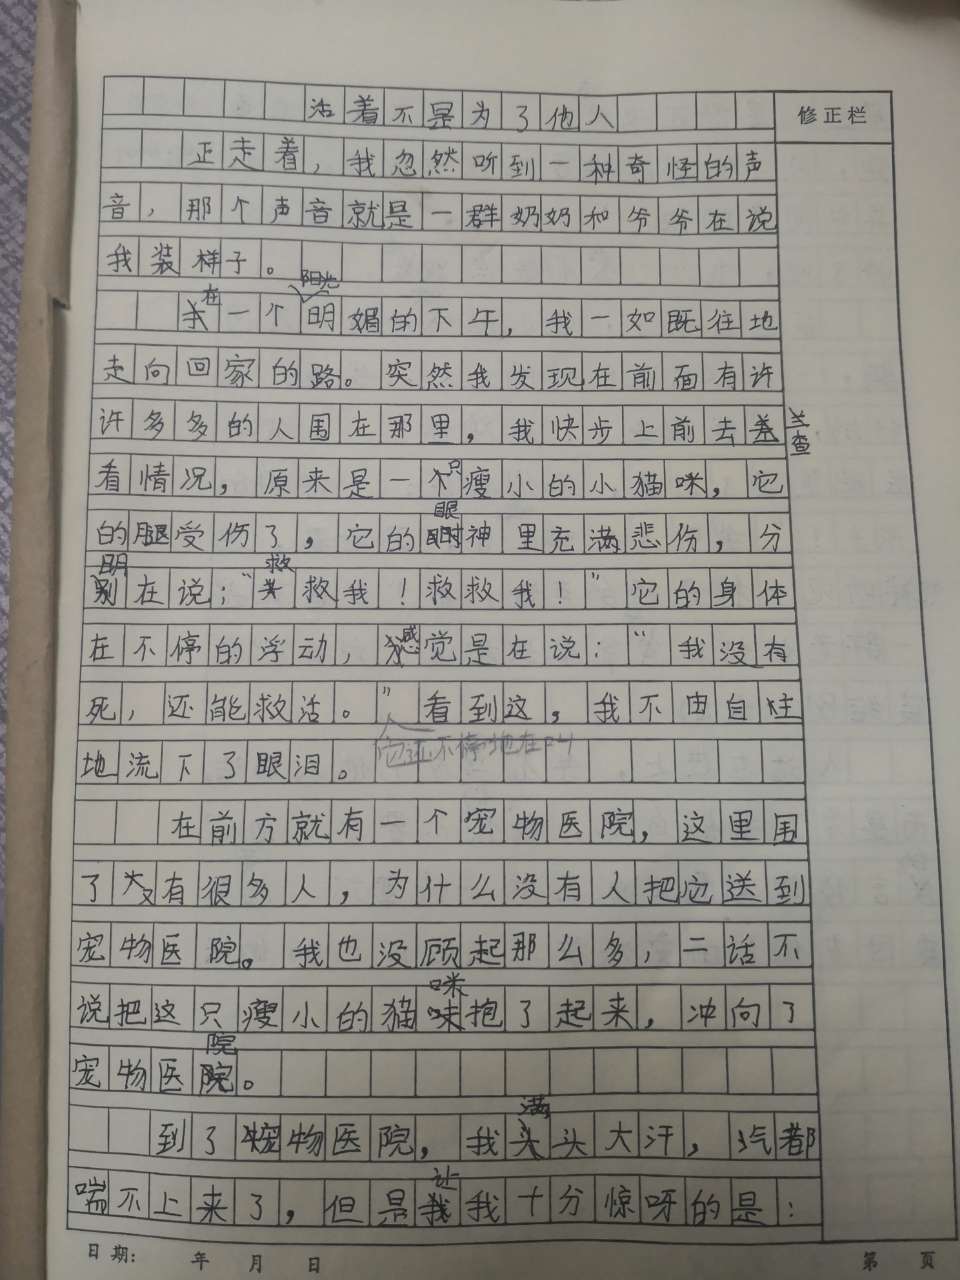 活着不是为了他人
修正栏
正走着，我忽然听到一种奇怪的声
音，那个声音就是一群奶奶和爷爷在说
我装样子。
在一个阳光明媚的下午，我一如既往地
走向回家的路。突然我发现在前面有许
许多多的人围在那里，我快步上前去查
看情况，原来是一只瘦小的小猫咪，它
的腿受伤了，它的眼神里充满悲伤，分
明在说：“救救我！救救我！”它的身体
在不停的浮动，感觉是在说：“我没有
死，还能救活。”看到这，我不由自主
他还不停地在叫
地流下了眼泪。
在前方就有一个宠物医院，这里围
了有很多人，为什么没有人把它送到
宠物医院。我也没顾起那么多，二话不
说把这只瘦小的猫咪抱了起来，冲向了
宠物医院。
到了宠物医院，我满头大汗，汽都
喘不上来了，但是让我十分惊呀的是：
日期： 年 月 日
第 页